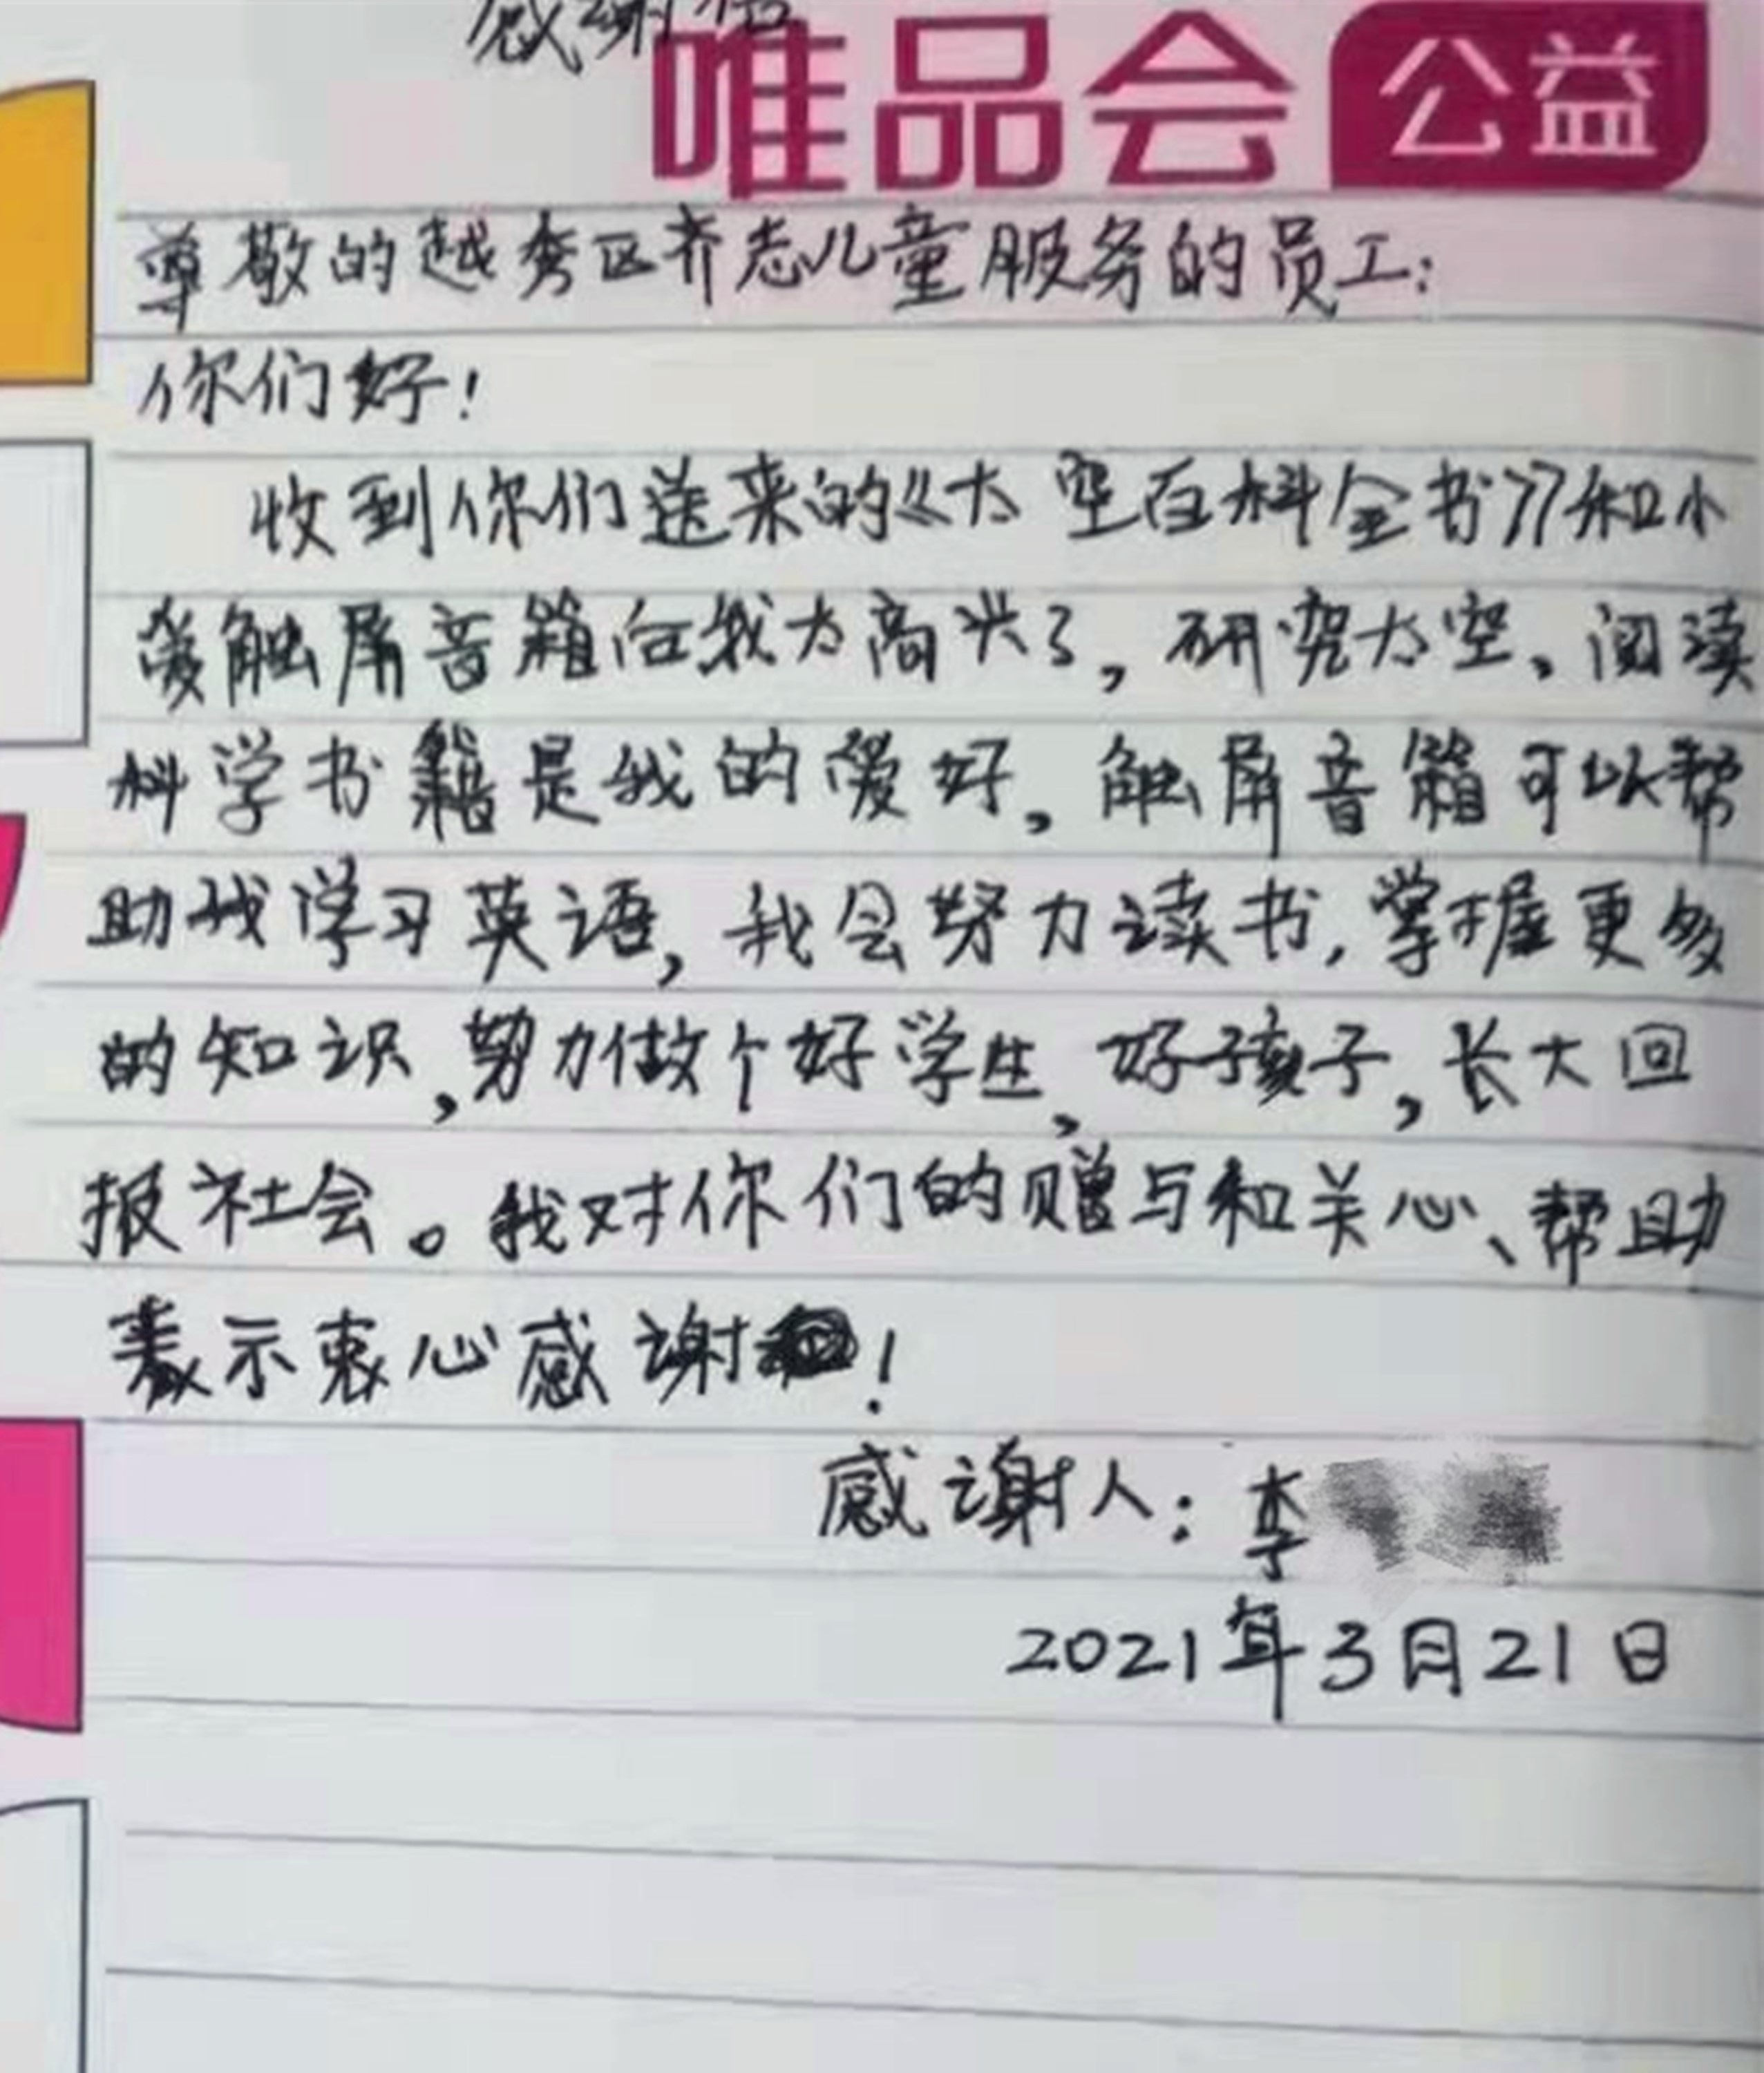 感谢信
唯品会 公益
尊敬的越秀区齐志儿童服务的员工:
你们好!
收到你们送来的《太空百科全书》和小
爱触屏音箱,我太高兴了,研究太空、阅读
科学书籍是我的爱好,触屏音箱可以帮
助我学习英语,我会努力读书,掌握更多
的知识,努力做个好学生,好孩子,长大回
报社会。我对你们的赠与和关心、帮助
表示衷心感谢!
感谢人:李
2021年3月21日